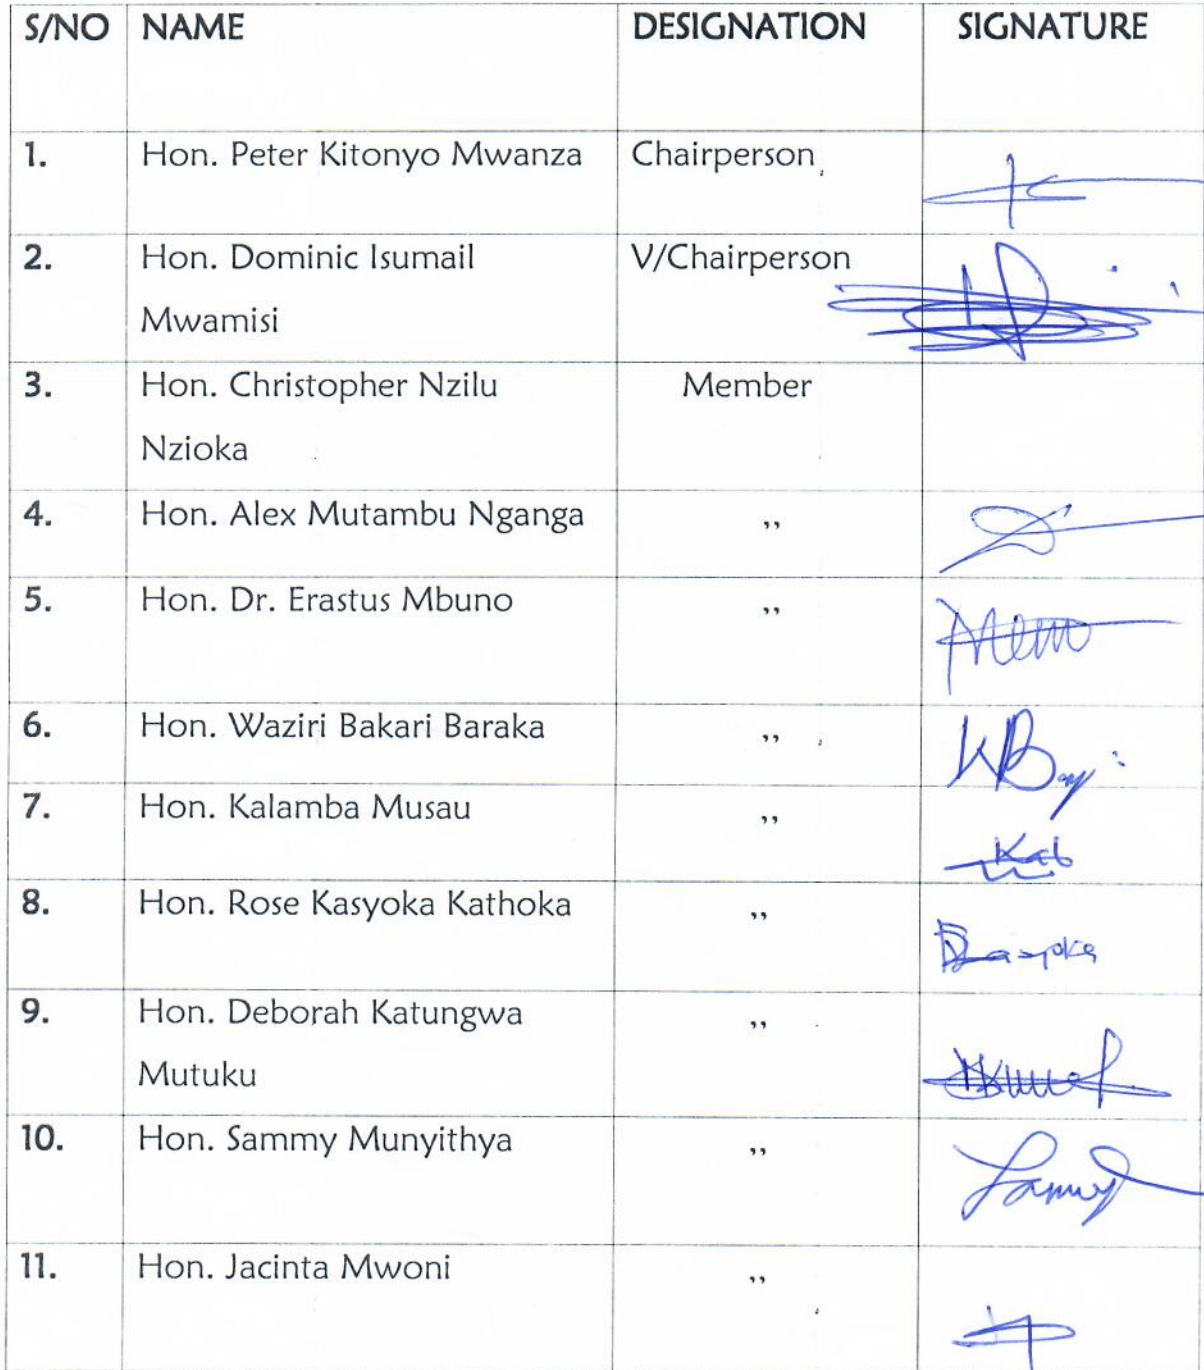 S/NO NAME DESIGNATION SIGNATURE
1. Hon. Peter Kitonyo Mwanza Chairperson
2. Hon. Dominic Isumail V/Chairperson
Mwamisi
3. Hon. Christopher Nzilu Member
Nzioka
4. Hon. Alex Mutambu Nganga ,,
5. Hon. Dr. Erastus Mbuno ,,
6. Hon. Waziri Bakari Baraka ,,
7. Hon. Kalamba Musau ,,
8. Hon. Rose Kasyoka Kathoka ,,
9. Hon. Deborah Katungwa ,,
Mutuku
10. Hon. Sammy Munyithya ,,
11. Hon. Jacinta Mwoni ,,